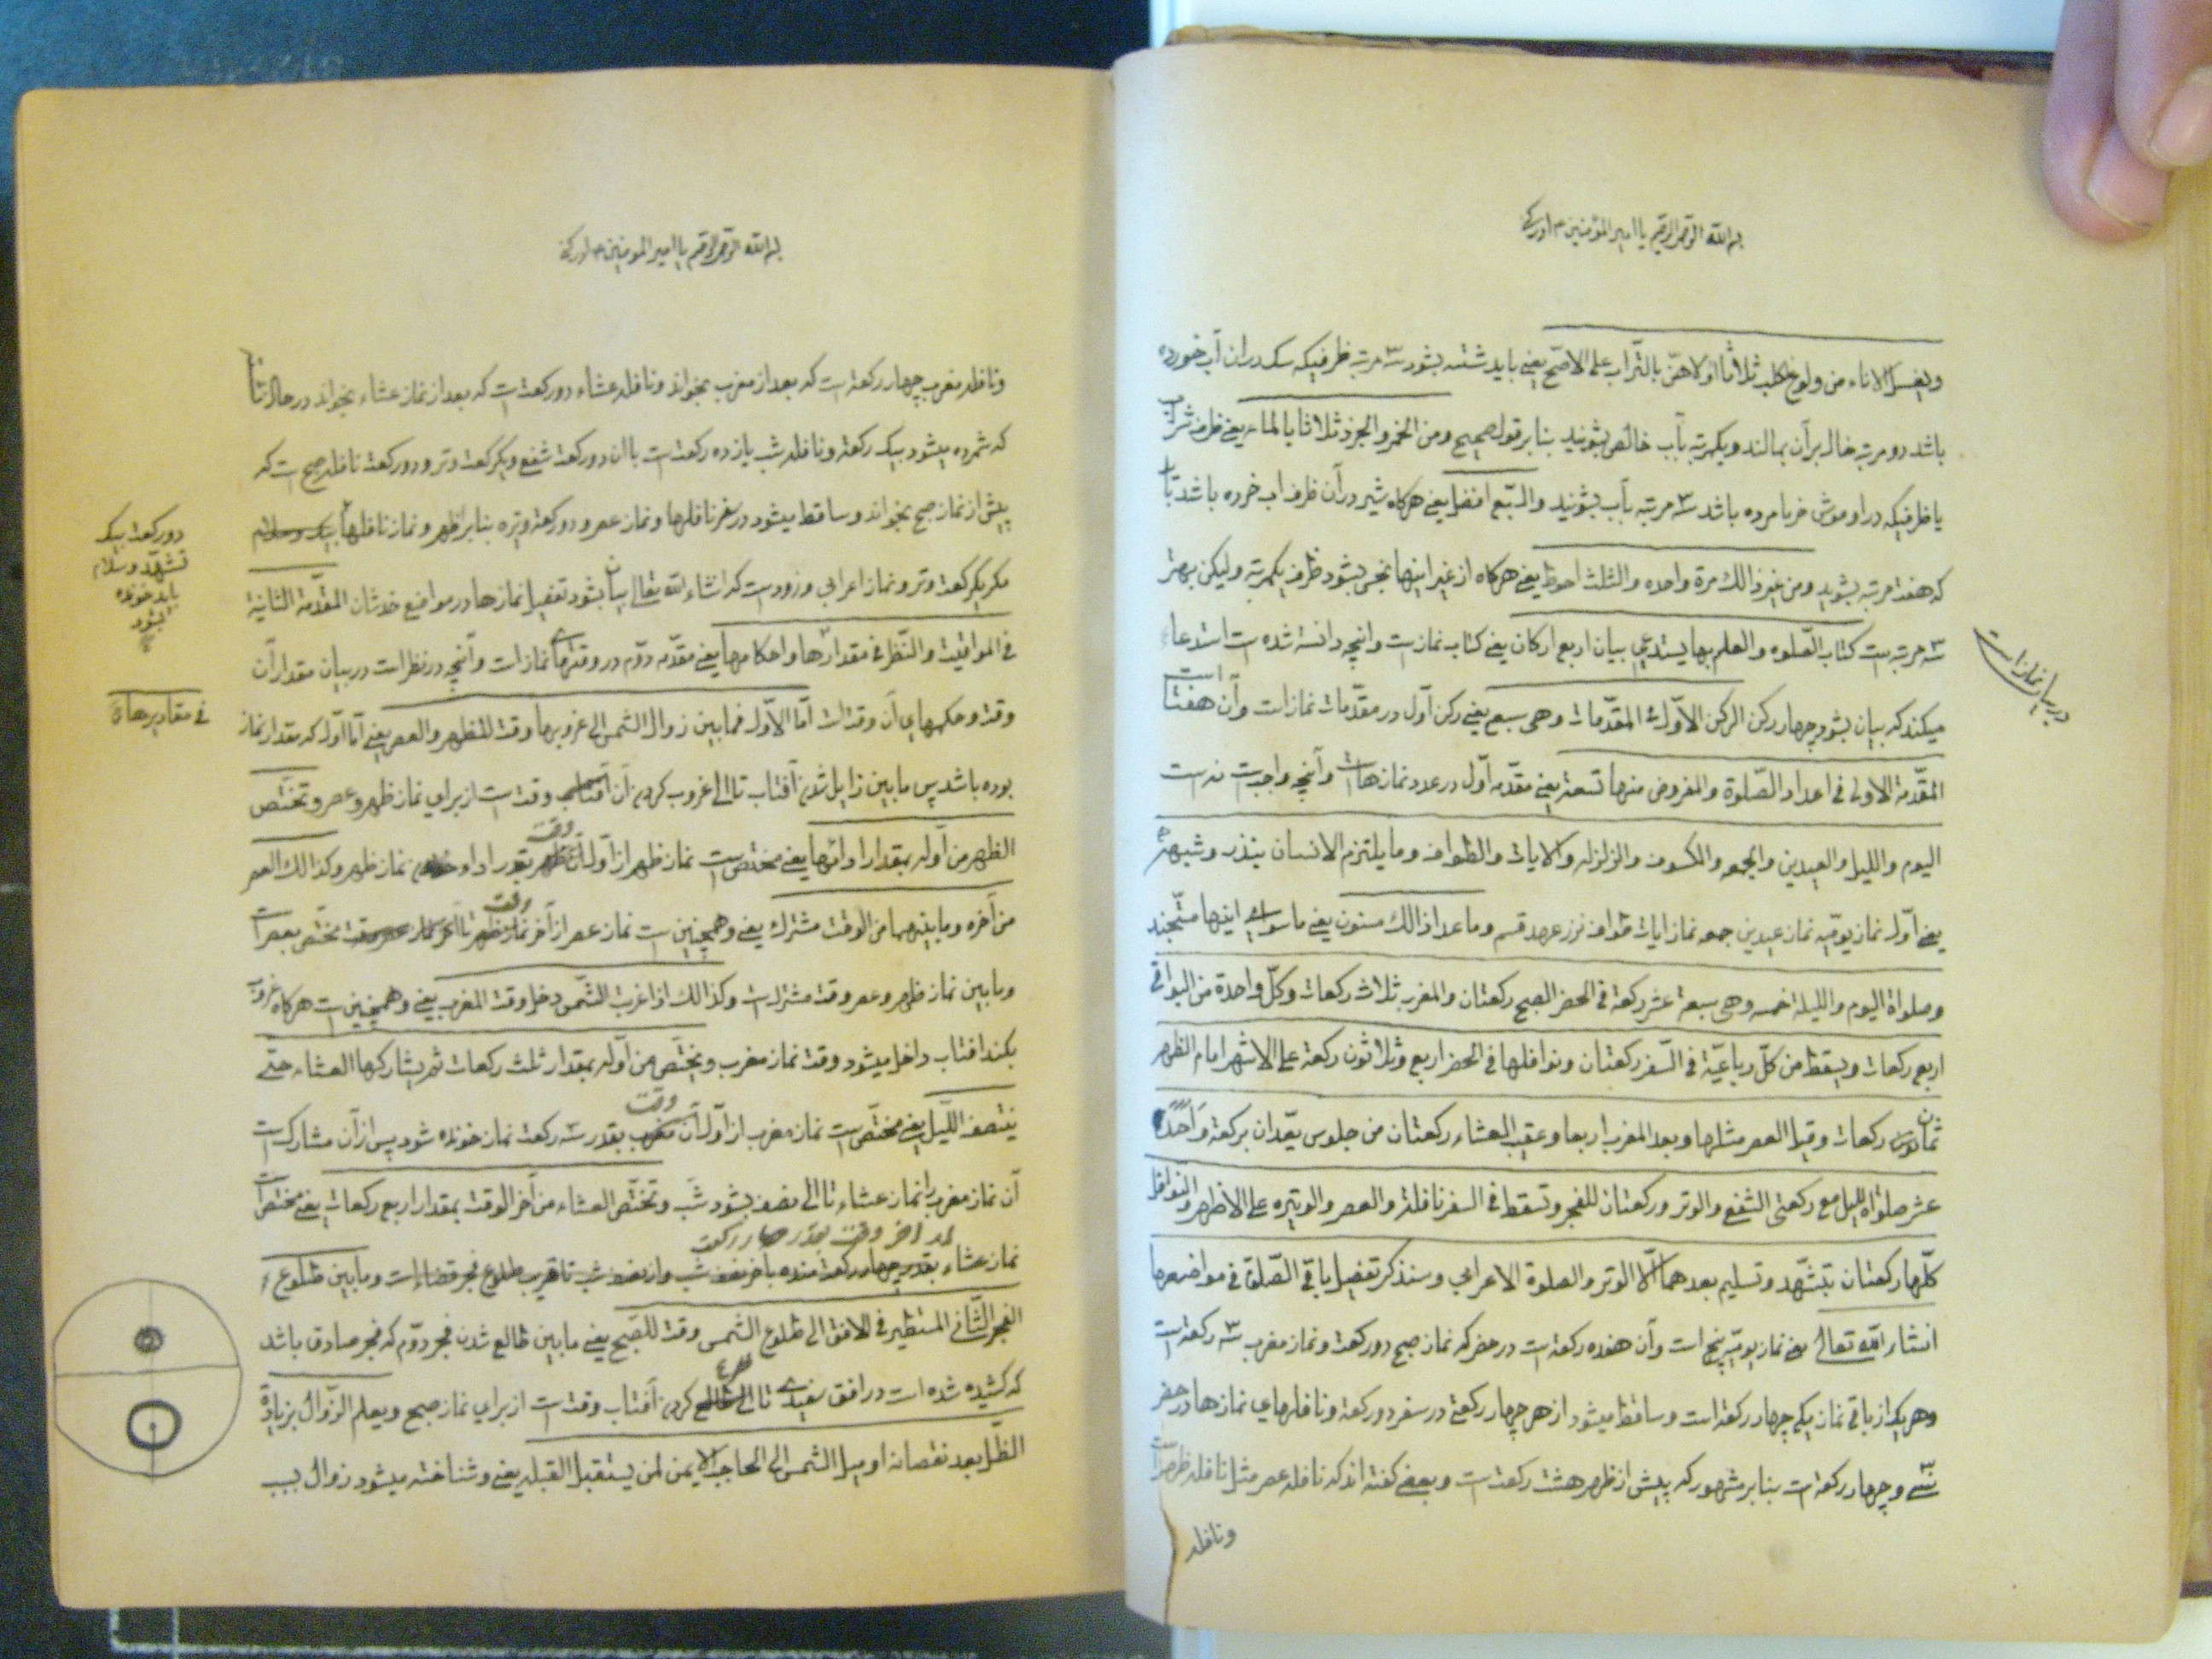 بسم الله الرحمن الرحیم یا امیر المؤمنین ادرکنی
ویغسل الاناء من ولوغ الکلب ثلاثا اولاهن بالتراب علی الاصح یعنی باید شسته بشود سه مرتبه ظرفیکه سک در ان آب خورده
باشد دو مرتبه خاک بر آن بمالند و یکمرتبه بآب خالص بشویند بنا بر قول صحیح ومن الخمر والجرذ ثلاثا بالماء یعنی ظرف شراب
یا ظرفیکه در او موش خرما مرده باشد سه مرتبه بآب بشویند والسبع افضل یعنی هرکاه شیر در آن ظرف اب خرده باشد تا
که هفت مرتبه بشوید ومن غیر ذالك مرة واحده والثلث احوط یعنی هرکاه از غیر اینها نجس بشود ظرف یکمرتبه ولیکن بهتر
سه مرتبه ست کتاب الصلوه والعلم بها یستدعی بیان اربع ارکان یعنی کتاب نمازست وانچه دانسته شده ست استدعاء
میکند که بیان بشود چهار رکن الرکن الاول فی المقدمات وهی سبع یعنی رکن اول در مقدمات نماز است وآن هفتا است
المقدمة الاولی فی اعداد الصلوة والمفروض منها تسعة یعنی مقدمه اول در عدد نمازها است وآنچه واجبست نه ست
الیوم واللیل والعیدین والجمعه والکسوف والزلزله والایات والطواف وما یلتزم الانسان بنذر وشبهه
یعنی اول نماز یومیه نماز عیدین جمعه نماز ایات طواف نرز عهد قسم وما عدا ذالك مسنون یعنی ما سوای اینها ستحبند
وصلواة الیوم واللیلة خمسه وهی سبعة عشر رکعة فی الحضر الصبح رکعتان والمغرب ثلاث رکعات وکل واحدة من البواقی
اربع رکعات ویسقط من کل رباعیة فی السفر رکعتان ونوافلها فی الحضر اربع وثلاثون رکعة علی الاشهر امام الظهر
ثمان رکعات وقبل العصر مثلها وبعد المغرب اربعا وعقیب العشاء رکعتان من جلوس یعدان برکعة واحدی
عشر صلواة اللیل مع رکعتی الشفع والوتر ورکعتان للفجر وتسقط فی السفر نافلة والعصر والوتیره علی الاظهر والنوافل
کلها رکعتان بتشهد وتسلیم بعدهما الا الوتر والصلوة الاعرابی وسنذکر تفصیل باقی الصلوة فی مواضعها
انشاء الله تعالی یعنی نماز یومیه پنج است وآن هفده رکعت است در حضر که نماز صبح دو رکعت ونماز مغرب سه رکعت است
وهر یک از باقی نماز یکی چهار رکعة است وساقط میشود از هر چهار رکعتی در سفر دو رکعة ونافلهای نمازها در حضر
سی وچهار رکعة است بنا بر مشهور که پیش از ظهر هشت رکعت ست وبعضی کفته اند که نافله عصر مثل نافله ظهر است
ونافله
در بیان نماز است
بسم الله الرحمن الرحیم یا امیر المومنین ادرکنی
ونافله مغرب چهار رکعة است که بعد از مغرب بخواند ونافله عشاء دو رکعت است که بعد از نماز عشاء بخواند در حال
که شمرده میشود بیک رکعة ونافله شب یازده رکعت است با ان دو رکعت شفع ویکرکعت وتر و دو رکعت نافله صبح است که
پیش از نماز صبح بخواند وساقط میشود در سفر نافلها ونماز عصر و دو رکعة وتیره بنا بر اظهر ونماز نافلها
مکر یکرکعت وتر ونماز اعرابی وزودست که انشاء الله تعالی بیان بشود تفصیل نمازها در مواضع خدشان المقدمة الثانیة
فی المواقیت والنظر فی مقدارها واحکامها یعنی مقدمه دوم در وقتهای نماز است وآنچه در نظر است در بیان مقدار آن
وقت وحکمهای آن وقت است اما الاول فما بین زوال الشمس الی غروبها وقت للظهر والعصر یعنی اما اول که مقدار نماز
بوده باشد پس ما بین زایل شدن آفتاب تا الی غروب کردن آن آفتاب وقت ست از برای نماز ظهر وعصر وتختص
الظهر من اوله بمقدار ادائها یعنی مختص ست نماز ظهر از اول آن وقت بقدر ادا نماز ظهر وکذالك العصر
من آخره وما بینهما من الوقت مشترك یعنی وهمچنین ست نماز عصر از آخر وقت مختص بعصر است
وما بین نماز ظهر وعصر وقت مشترکست وکذالك اذا غربت الشمس دخل وقت المغرب یعنی وهمچنین ست هرکاه غروب
بکند افتاب داخل میشود وقت نماز مغرب ویختص من اوله بمقدار ثلث رکعات ثم یشارکها العشاء حتی
ینتصف اللیل یعنی مختص ست نماز مغرب از اول آن وقت بقدر سه رکعت نماز خونده شود پس از آن مشارکست
آن نماز مغرب را نماز عشاء تا الی نصف بشود شب وتختص العشاء من آخر الوقت بمقدار اربع رکعات یعنی مختص است
نماز عشاء از اخر وقت بقدر چهار رکعت وما بین طلوع
الفجر الثانی المستطیر فی الافق الی طلوع الشمس وقت للصبح یعنی ما بین طالع شدن فجر دوم که فجر صادق باشد
که کشیده شده است در افق سفیدی تا الی طلوع کردن آفتاب وقت ست از برای نماز صبح ویعلم الزوال بزیادة
الظل بعد نقصانه او میل الشمس الی الحاجب الایمن لمن یستقبل القبلة یعنی وشناخته میشود زوال بسبب
دو رکعت بیک
تشهد وسلام
باید خونده
بشود
فی مقادیرها